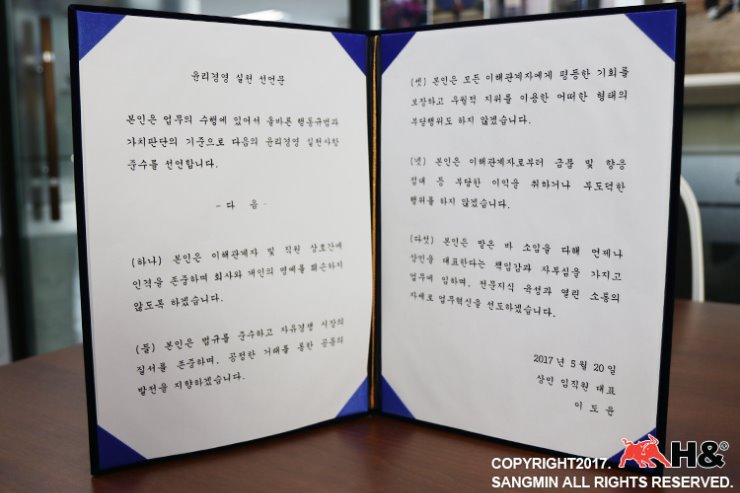 윤리경영 실천 선언문
본인은 업무의 수행에 있어서 올바른 행동규범과
가치판단의 기준으로 다음의 윤리경영 실천사항
준수를 선언합니다.
- 다 음 -
(하나) 본인은 이해관계자 및 직원 상호간에
인격을 존중하며 회사와 개인의 명예를 훼손하지
않도록 하겠습니다.
(둘) 본인은 법규를 준수하고 자유경쟁 시장의
질서를 존중하며, 공정한 거래를 통한 공동의
발전을 지향하겠습니다.
(셋) 본인은 모든 이해관계자에게 평등한 기회를
보장하고 우월적 지위를 이용한 어떠한 형태의
부당행위도 하지 않겠습니다.
(넷) 본인은 이해관계자로부터 금품 및 향응
접대 등 부당한 이익을 취하거나 부도덕한
행위를 하지 않겠습니다.
(다섯) 본인은 맡은 바 소임을 다해 언제나
상민을 대표한다는 책임감과 자부심을 가지고
업무에 임하며, 전문지식 육성과 열린 소통의
자세로 업무혁신을 선도하겠습니다.
2017년 5월 20일
상민 임직원 대표
이 도 윤
H&®
COPYRIGHT2017.
SANGMIN ALL RIGHTS RESERVED.